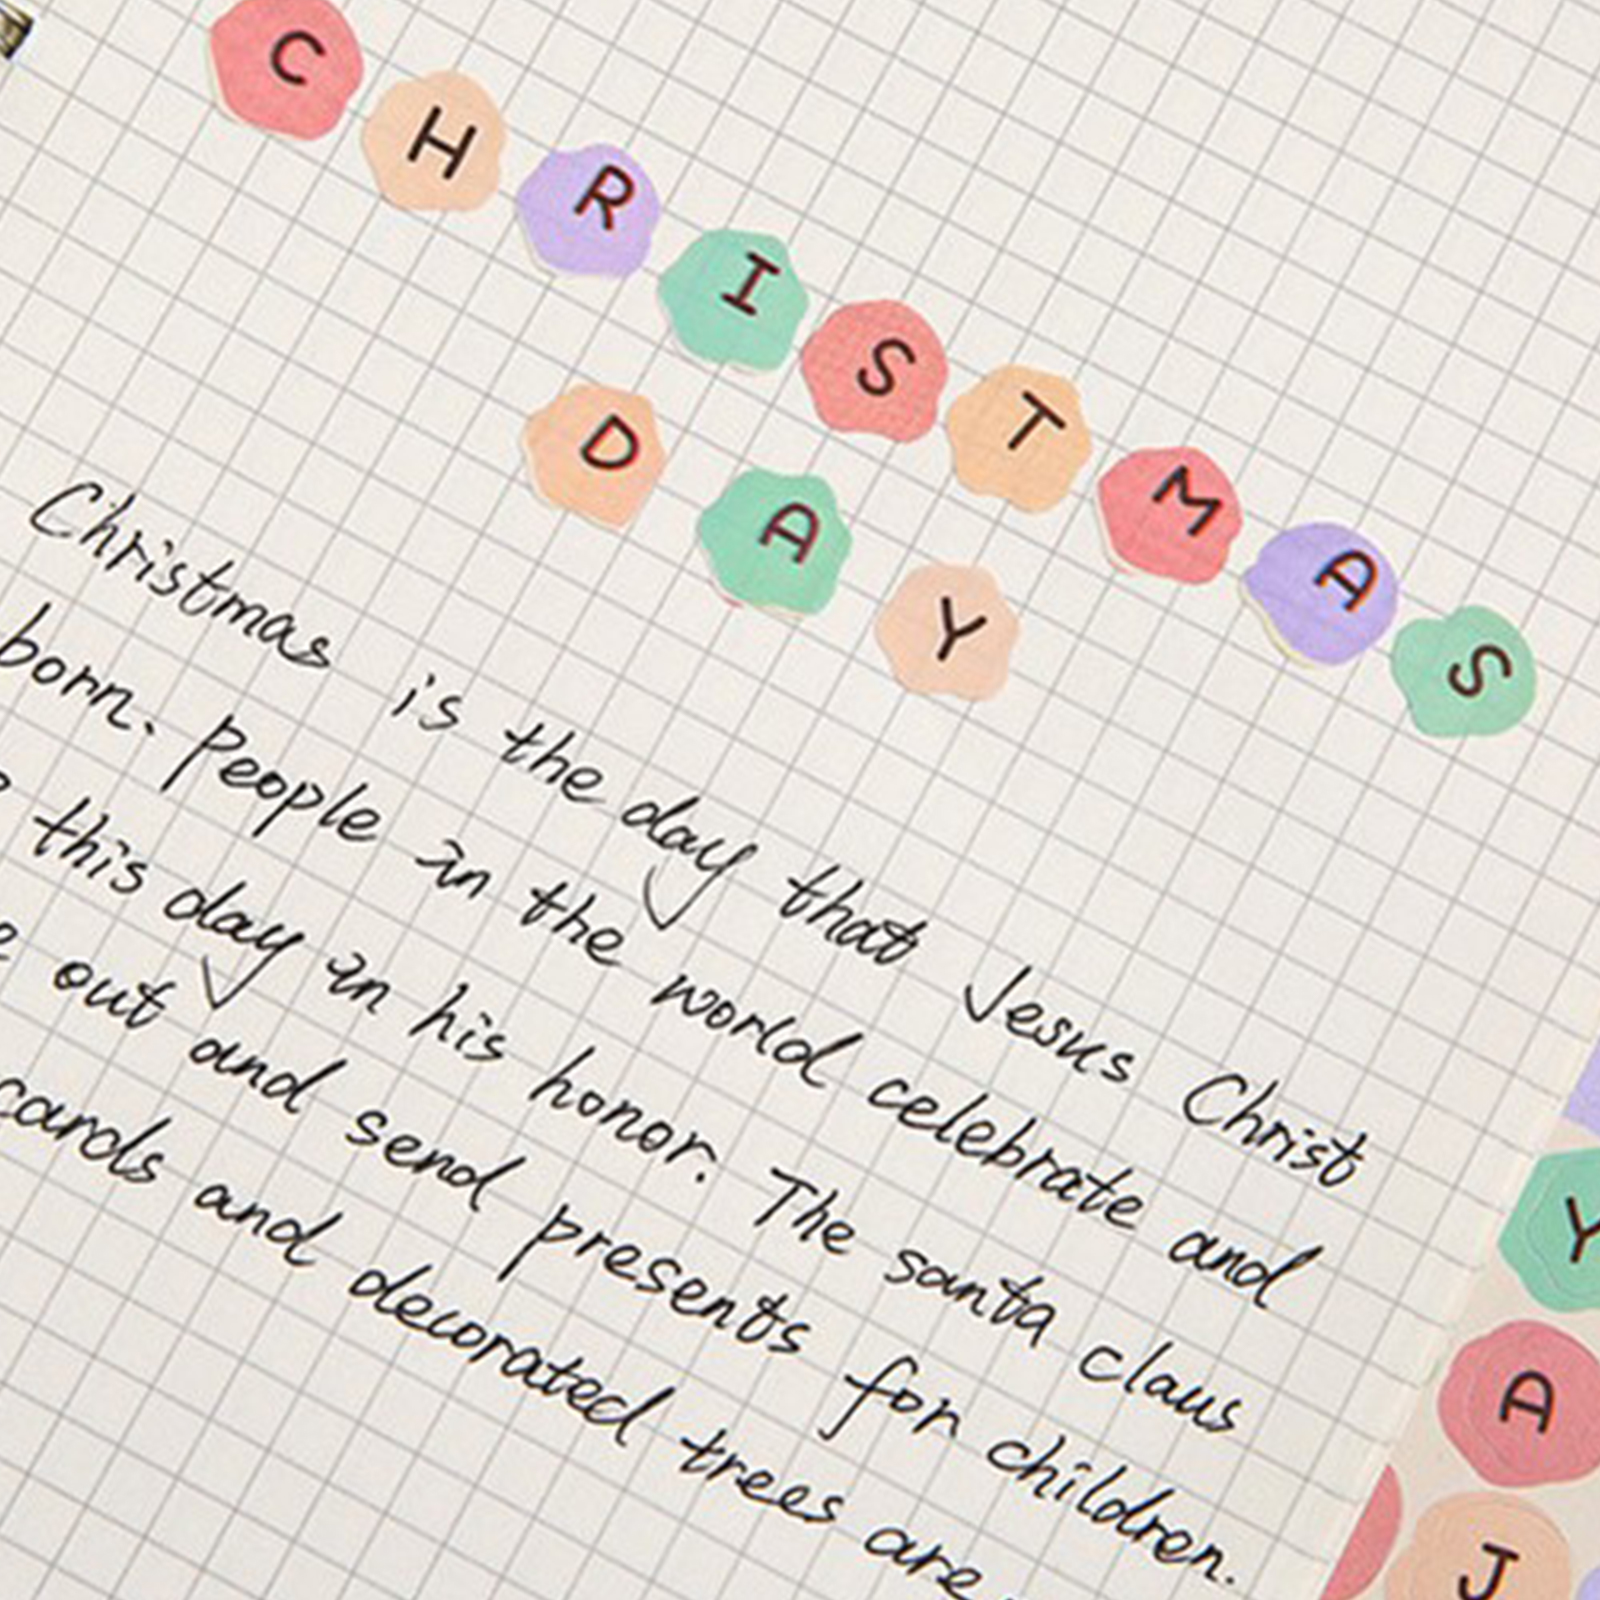 CHRISTMAS
DAY
Christmas is the day that Jesus Christ
born. people in the world celebrate and
this day in his honor. The santa claus
out and send presents for children.
cards and decorated trees are
Y
A
J